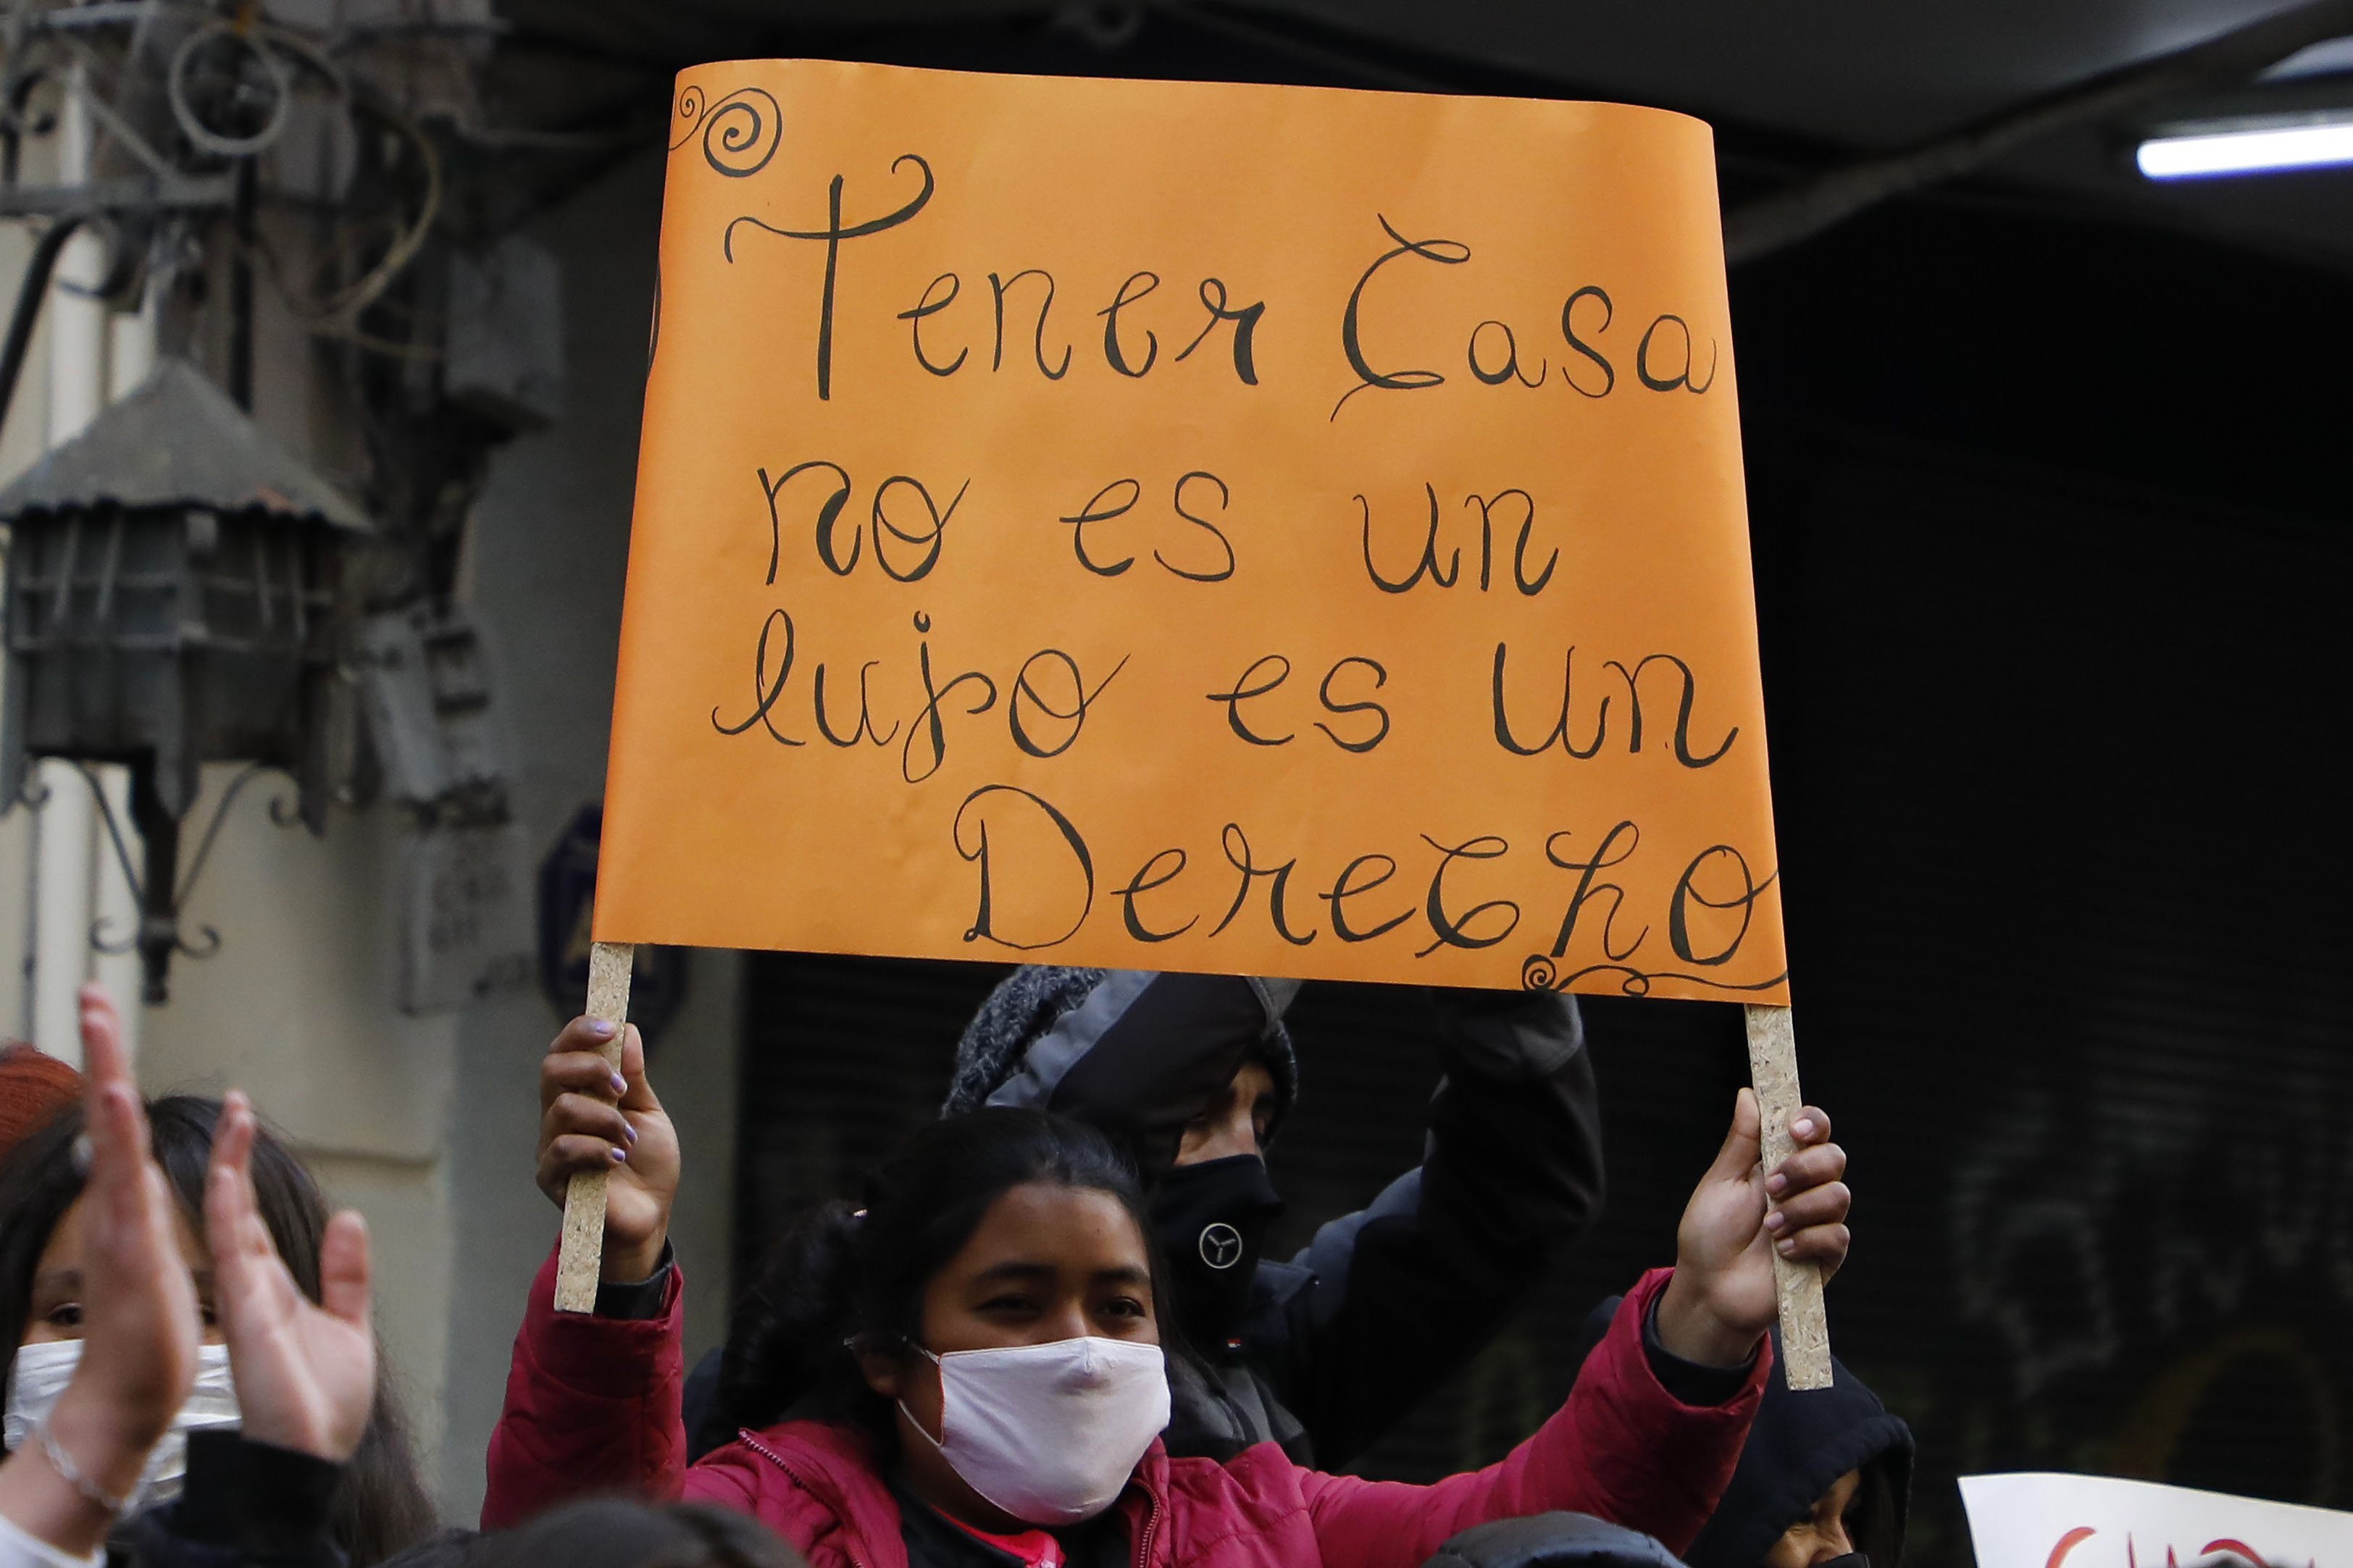 Tener Casa
no es un
lujo es un
Derecho